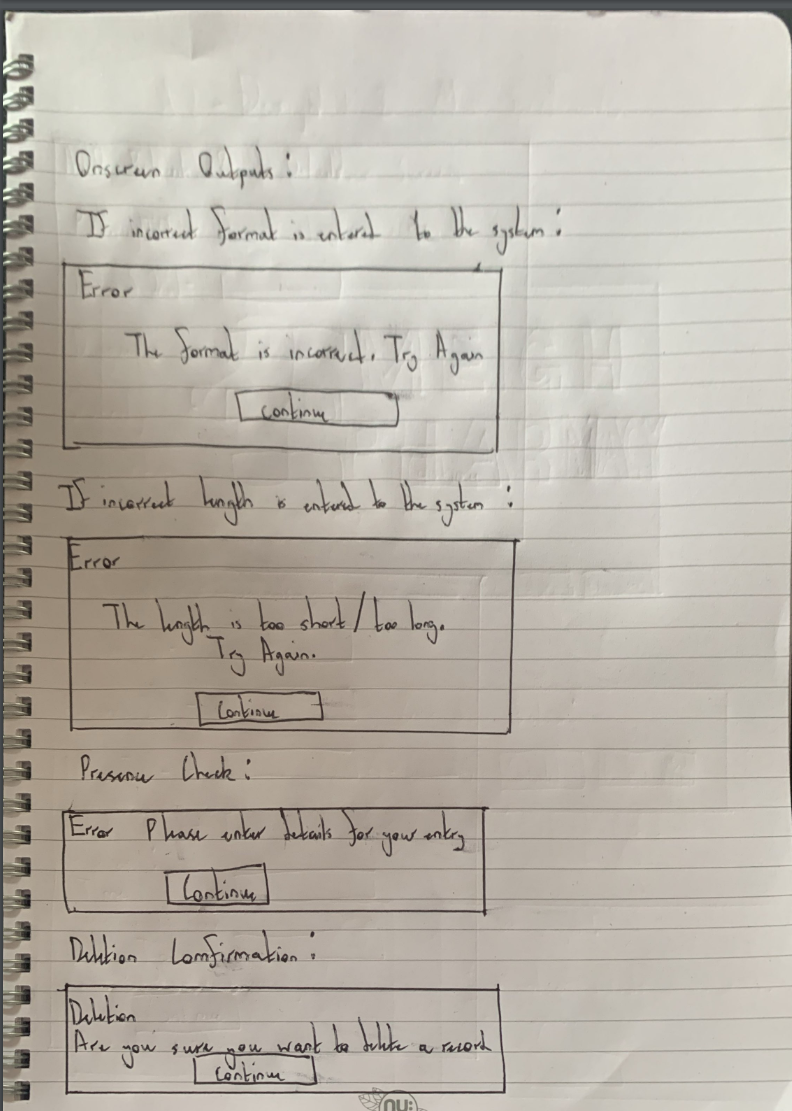 Onscreen Outputs:
If incorrect format is entered to the system:
Error
The format is incorrect. Try Again
Continue
If incorrect length is entered to the system:
Error
The length is too short/too long.
Try Again.
Continue
Presence Check:
Error Please enter details for your entry
Continue
Deletion Comfirmation:
Deletion
Are you sure you want to delete a record
Continue
nu: